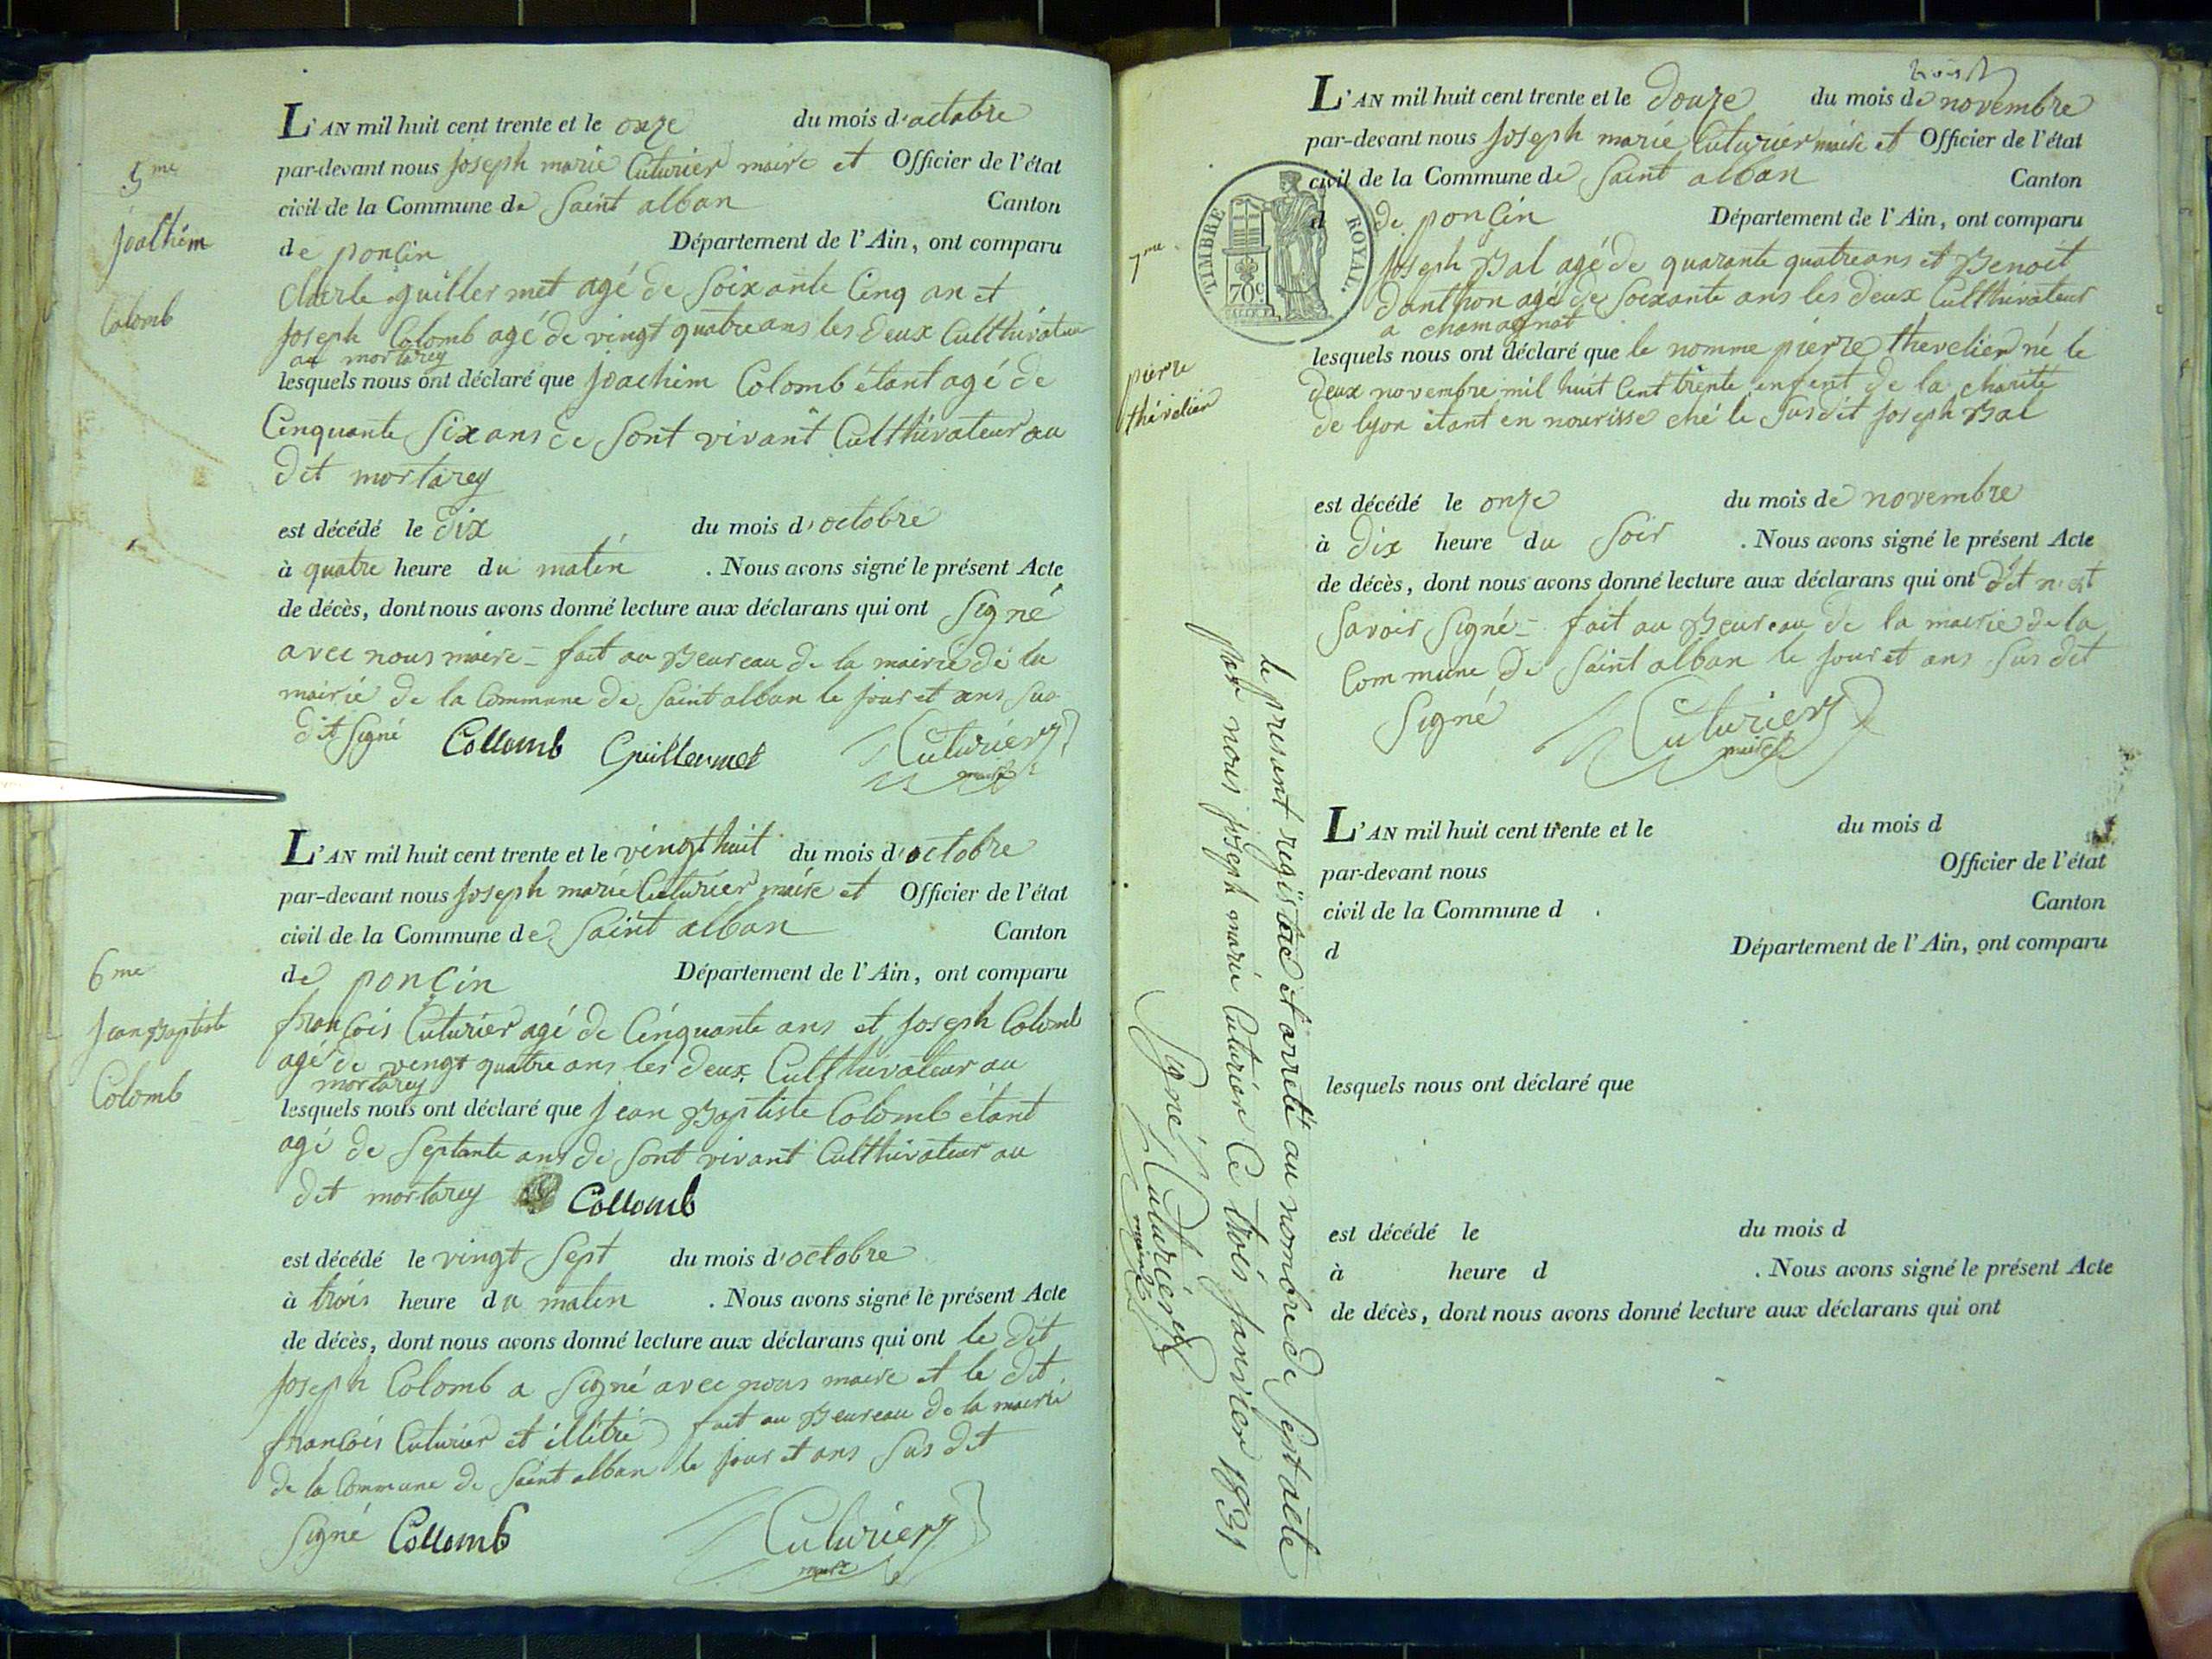 5me
Joachim
Colomb
L'AN mil huit cent trente et le onze du mois d'octobre
par-devant nous Joseph marie Cuturier maire et Officier de l'état
civil de la Commune de Saint alban Canton
de poncin Département de l'Ain, ont comparu
Charle guillermet agé de Soixante Cinq an et
Joseph Colomb agé de vingt quatre ans les deux Culthivateur
au mortarey
lesquels nous ont déclaré que Joachim Colomb étant agé de
Cinquante Six ans de Sont vivant Culthivateur au
dit mortarey
est décédé le dix du mois d'octobre
à quatre heure du matin . Nous avons signé le présent Acte
de décès, dont nous avons donné lecture aux déclarans qui ont Signé
avec nous maire = fait au Beureau de la mairie de la
mairie de la Commune de Saint alban le jour et ans Sus
dit Signé Collomb Guillermet Cuturier
maire
6me
Jean Baptiste
Colomb
L'AN mil huit cent trente et le vingt huit du mois d'octobre
par-devant nous Joseph marie Cuturier maire et Officier de l'état
civil de la Commune de Saint alban Canton
de poncin Département de l'Ain, ont comparu
françois Cuturier agé de Cinquante ans et Joseph Colomb
agé de vingt quatre ans les deux Culthivateur au
mortarey
lesquels nous ont déclaré que Jean Baptiste Colomb étant
agé de Septante ans de Sont vivant Culthivateur au
dit mortarey Collomb
est décédé le vingt Sept du mois d'octobre
à trois heure du matin . Nous avons signé le présent Acte
de décès, dont nous avons donné lecture aux déclarans qui ont le dit
Joseph Colomb a Signé avec nous maire et le dit
françois Cuturier et illitré fait au Beureau de la mairie
de la Commune de Saint alban le jour et ans Sus dit
Signé Collomb Cuturier
maire
7me
pierre
thévelier
TIMBRE ROYAL.
70c
L'AN mil huit cent trente et le douze du mois de novembre
par-devant nous Joseph marie Cuturier maire et Officier de l'état
civil de la Commune de Saint alban Canton
d de poncin Département de l'Ain, ont comparu
Joseph Bal agé de quarante quatre ans et Benoit
danthon agé de Soixante ans les deux Culthivateur
a chamagnat
lesquels nous ont déclaré que le nomme pierre thevelier né le
deux novembre mil huit Cent trente enfent de la charité
de lyon étant en nourisse ché le Susdit Joseph Bal
est décédé le onze du mois de novembre
à dix heure du Soir . Nous avons signé le présent Acte
de décès, dont nous avons donné lecture aux déclarans qui ont dit n'est
Savoir Signé = fait au Beureau de la mairie de la
Commune de Saint alban le Jour et ans Sus dit
Signé Cuturier
maire
le present registre et arrêté au nombre de Sept acte
par nous joseph marie Cuturier Ce trois janvier 1831
Signé Cuturier
maire
L'AN mil huit cent trente et le du mois d
par-devant nous Officier de l'état
civil de la Commune d Canton
d Département de l'Ain, ont comparu
lesquels nous ont déclaré que
est décédé le du mois d
à heure d . Nous avons signé le présent Acte
de décès, dont nous avons donné lecture aux déclarans qui ont